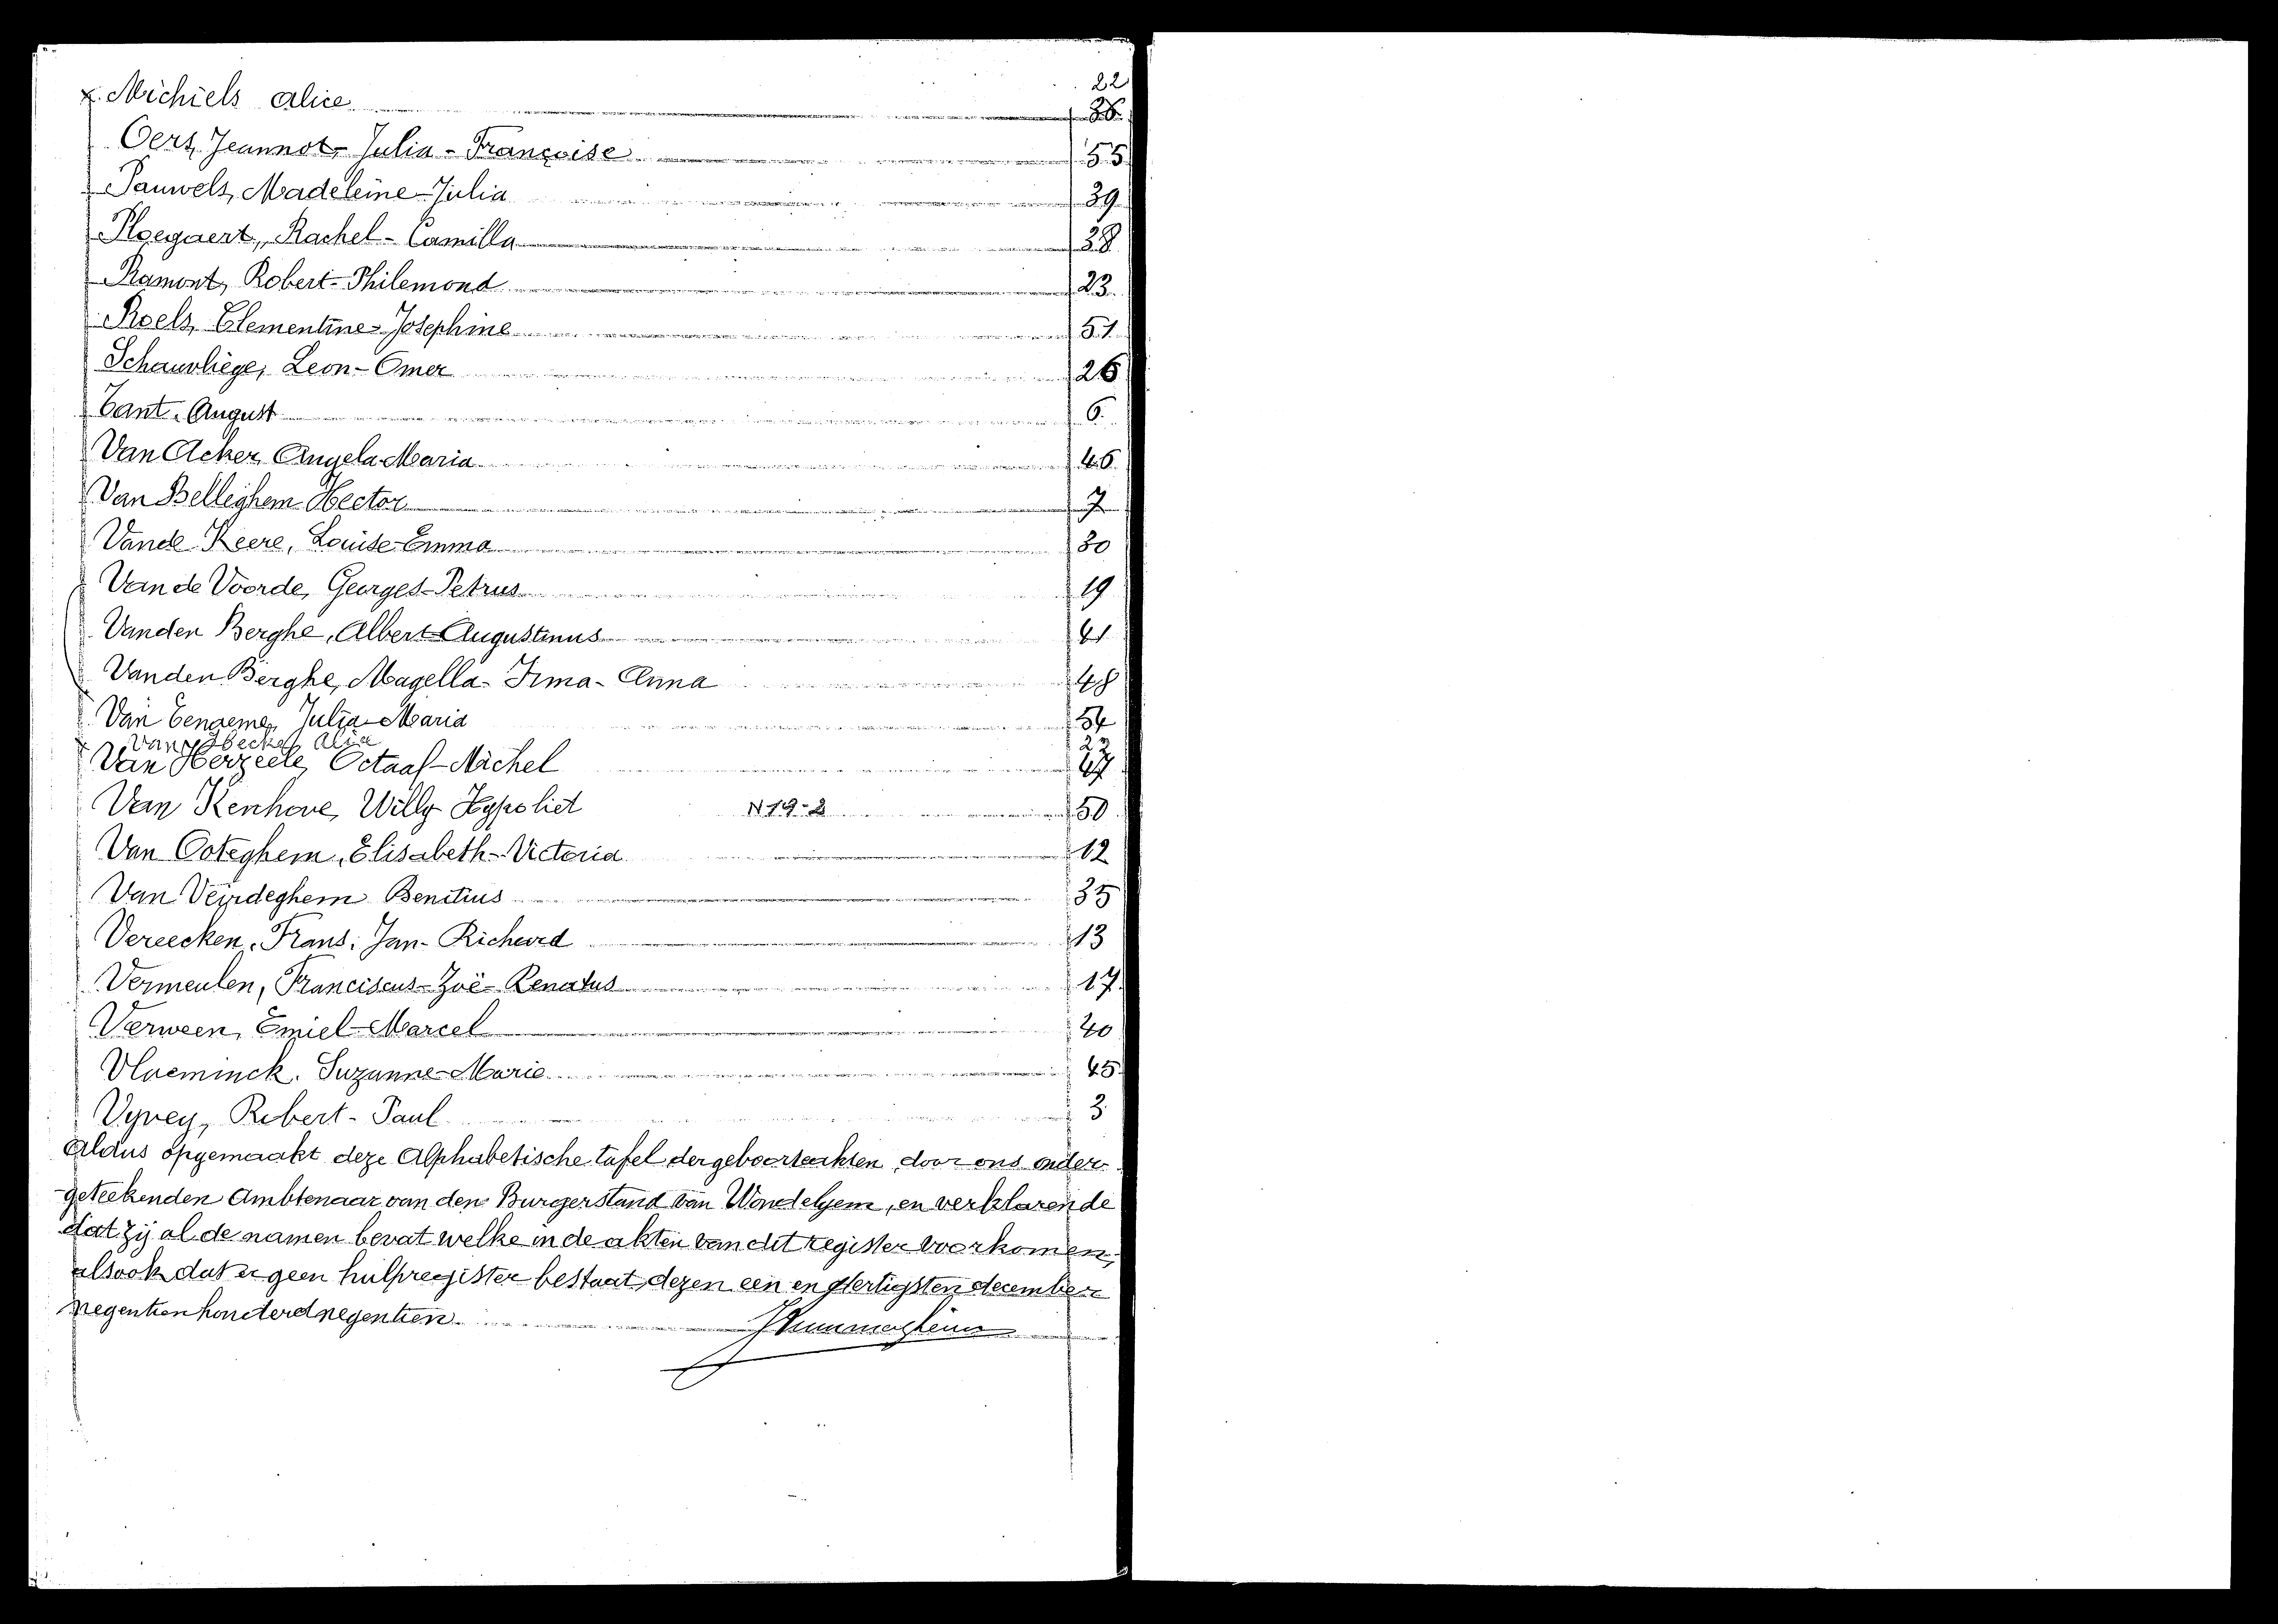 22
x. Michiels Alice
Oers, Jeannot-Julia-Françoise 55
Pauwels, Madeleine-Julia 39
Ploegaert, Rachel-Camilla 28
Ramont, Robert-Philemond 23
Roels, Clementine-Josephine 51
Schauvliege, Leon-Omer 26
Tant. August 6
Van Acker, Angela-Maria 46
Van Belleghem Hector 7
Vande Keere, Louise-Emma 30
Van de Voorde, Georges-Petrus 19
Vanden Berghe, Albert-Augustinus 41
Vanden Berghe, Magella-Irma-Anna 48
Van Eenaeme, Julia-Maria 54
x 22
Van Herzeele, Octaaf-Michel 47
Van Kenhove, Willy Hypoliet N19-2 50
Van Ooteghem, Elisabeth-Victoria 12
Van Veirdeghem Benitius 35
Vereecken, Frans, Jan-Richard 13
Vermeulen, Franciscus-Zoë-Renatus 17
Verween, Emiel-Marcel 40
Vlaeminck. Suzanne-Marie 45
Vyvey, Robert-Paul 3
Aldus opgemaakt deze Alphabetische tafel der geboorteakten door ons onder-
geteekenden Ambtenaar van den Burgerstand van Wondelgem, en verklarende
dat zij al de namen bevat welke in de akten van dit register voorkomen,
alsook dat er geen hulpregister bestaat, dezen een en dertigsten december
negentien honderd negentien.